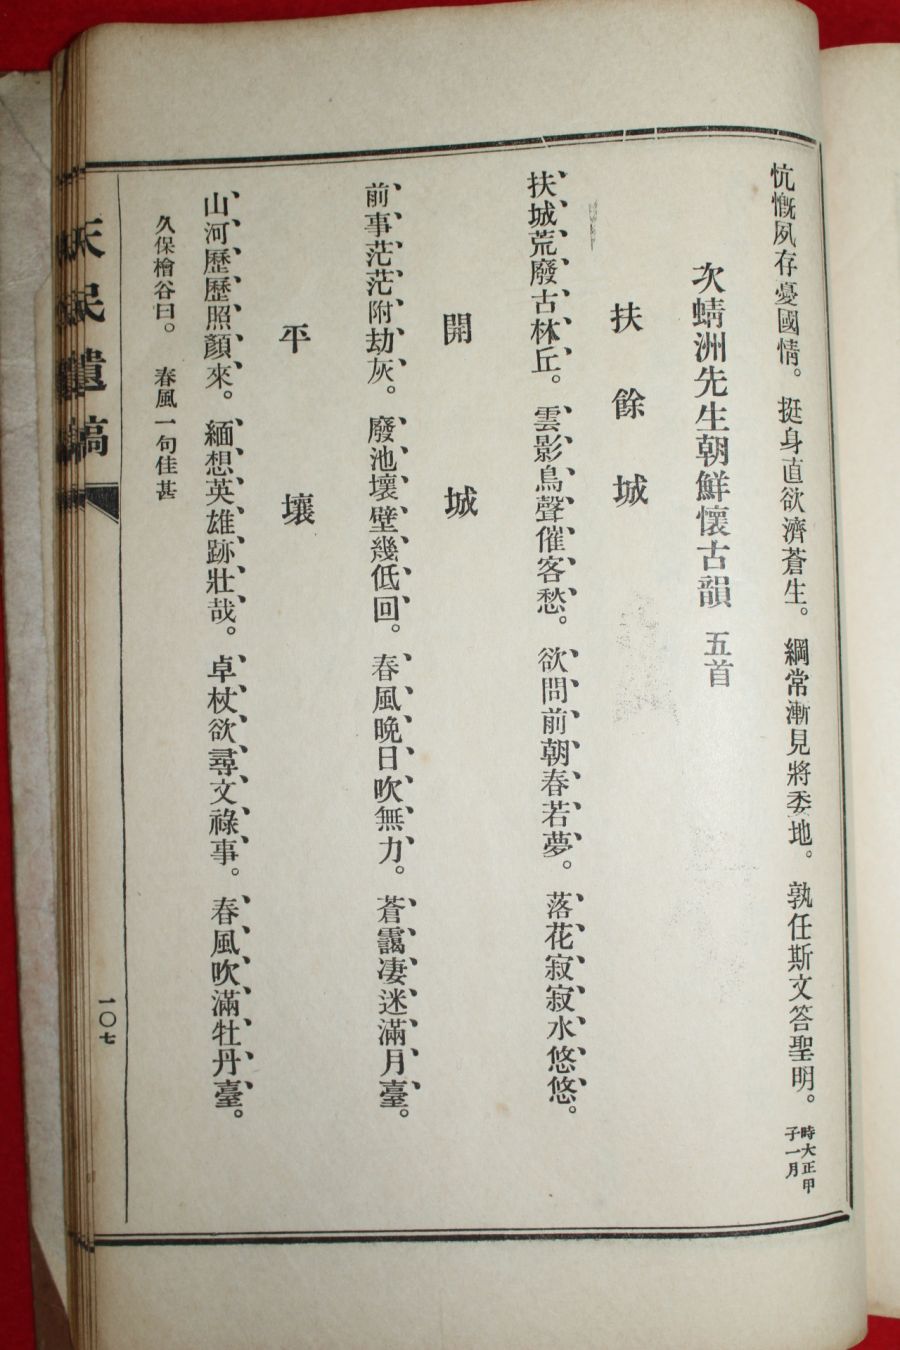 忼慨夙存憂國情。挺身直欲濟蒼生。綱常漸見將委地。孰任斯文答聖明。時大正甲子一月
次蜻洲先生朝鮮懷古韻 五首
扶餘城
扶城荒廢古林丘。雲影鳥聲催客愁。欲問前朝春若夢。落花寂寂水悠悠。
開城
前事茫茫附劫灰。廢池壞壁幾低回。春風晩日吹無力。蒼靄凄迷滿月臺。
平壤
山河歷歷照顏來。緬想英雄跡壯哉。卓杖欲尋文祿事。春風吹滿牡丹臺。
久保檜谷曰。春風一句佳甚
天民遺稿
一〇七